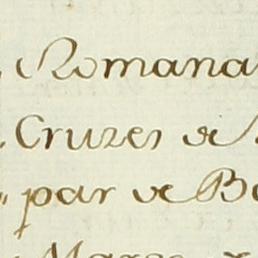 Romana
Cruzes de
par de Ba